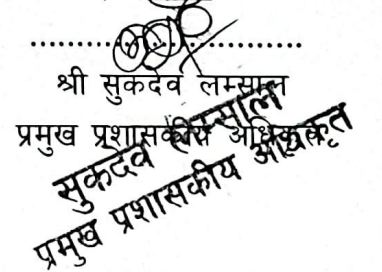 श्री सुकदेव लम्साल
प्रमुख प्रशासकीय अधिकृत
सुकदेव लम्साल
प्रमुख प्रशासकीय अधिकृत